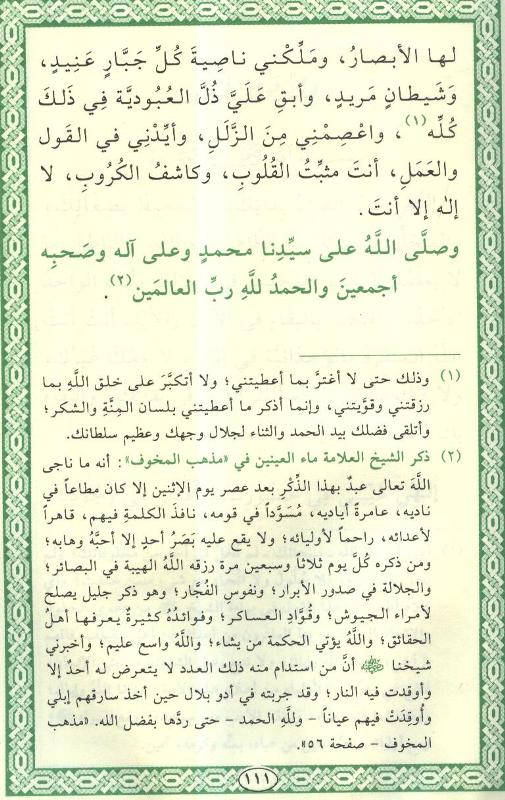 لها الأبصارُ، ومَلِّكْني ناصِيةَ كُلِّ جَبَّارٍ عَنِيدٍ،
وَشَيطانٍ مَريدٍ، وأبقِ عَلَيَّ ذُلَّ العُبوديَّة فِي ذَلكَ
كُلِّه(١)، واعْصِمْني مِنَ الزَّلَلِ، وأيِّدْنِي في القَول
والعَمَلِ، أنتَ مثبِّتُ القُلُوبِ، وكاشفُ الكُروبِ، لا
إلٰه إلا أنتَ.
وصلَّى اللَّهُ على سيِّدِنا محمدٍ وعلى آله وصَحبِه
أجمعينَ والحمدُ للَّهِ ربِّ العالمَين(٢).
(١) وذلك حتى لا أغترَّ بما أعطيتني؛ ولا أتكبَّرَ على خلق اللَّهِ بما
رزقتني وقوَّيتني، وإنما أذكر ما أعطيتني بلسان المِنَّةِ والشكر؛
وأتلقى فضلك بيد الحمد والثناء لجلال وجهك وعظيم سلطانك.
(٢) ذكر الشيخ العلامة ماء العينين في «مذهب المخوف»: أنه ما ناجى
اللَّهَ تعالى عبدٌ بهذا الذِّكْرِ بعد عصر يوم الإثنين إلا كان مطاعاً في
ناديه، عامرةً أياديه، مُسَوَّداً في قومه، نافذَ الكلمةِ فيهم، قاهراً
لأعدائه، راحماً لأوليائه؛ ولا يقع عليه بَصَرُ أحدٍ إلا أحبَّهُ وهابه؛
ومن ذكره كُلَّ يوم ثلاثاً وسبعين مرة رزقه اللَّهُ الهيبة في البصائر؛
والجلالة في صدور الأبرار؛ ونفوس الفُجَّار؛ وهو ذكر جليل يصلح
لأمراء الجيوش؛ وقُوَّادِ العساكر؛ وفوائدُهُ كثيرةٌ يعرفها أهلُ
الحقائق؛ واللَّهُ يؤتي الحكمة من يشاء؛ واللَّهُ واسع عليم؛ وأخبرني
شيخنا ﷺ أنَّ من استدام منه ذلك العدد لا يتعرض له أحدٌ إلا
وأوقدت فيه النار؛ وقد جربته في أدو بلال حين أخذ سارقهم إبلي
وأُوقِدَتْ فيهم عياناً - وللَّهِ الحمد - حتى ردَّها بفضل الله. «مذهب
المخوف - صفحة ٥٦».
١١١